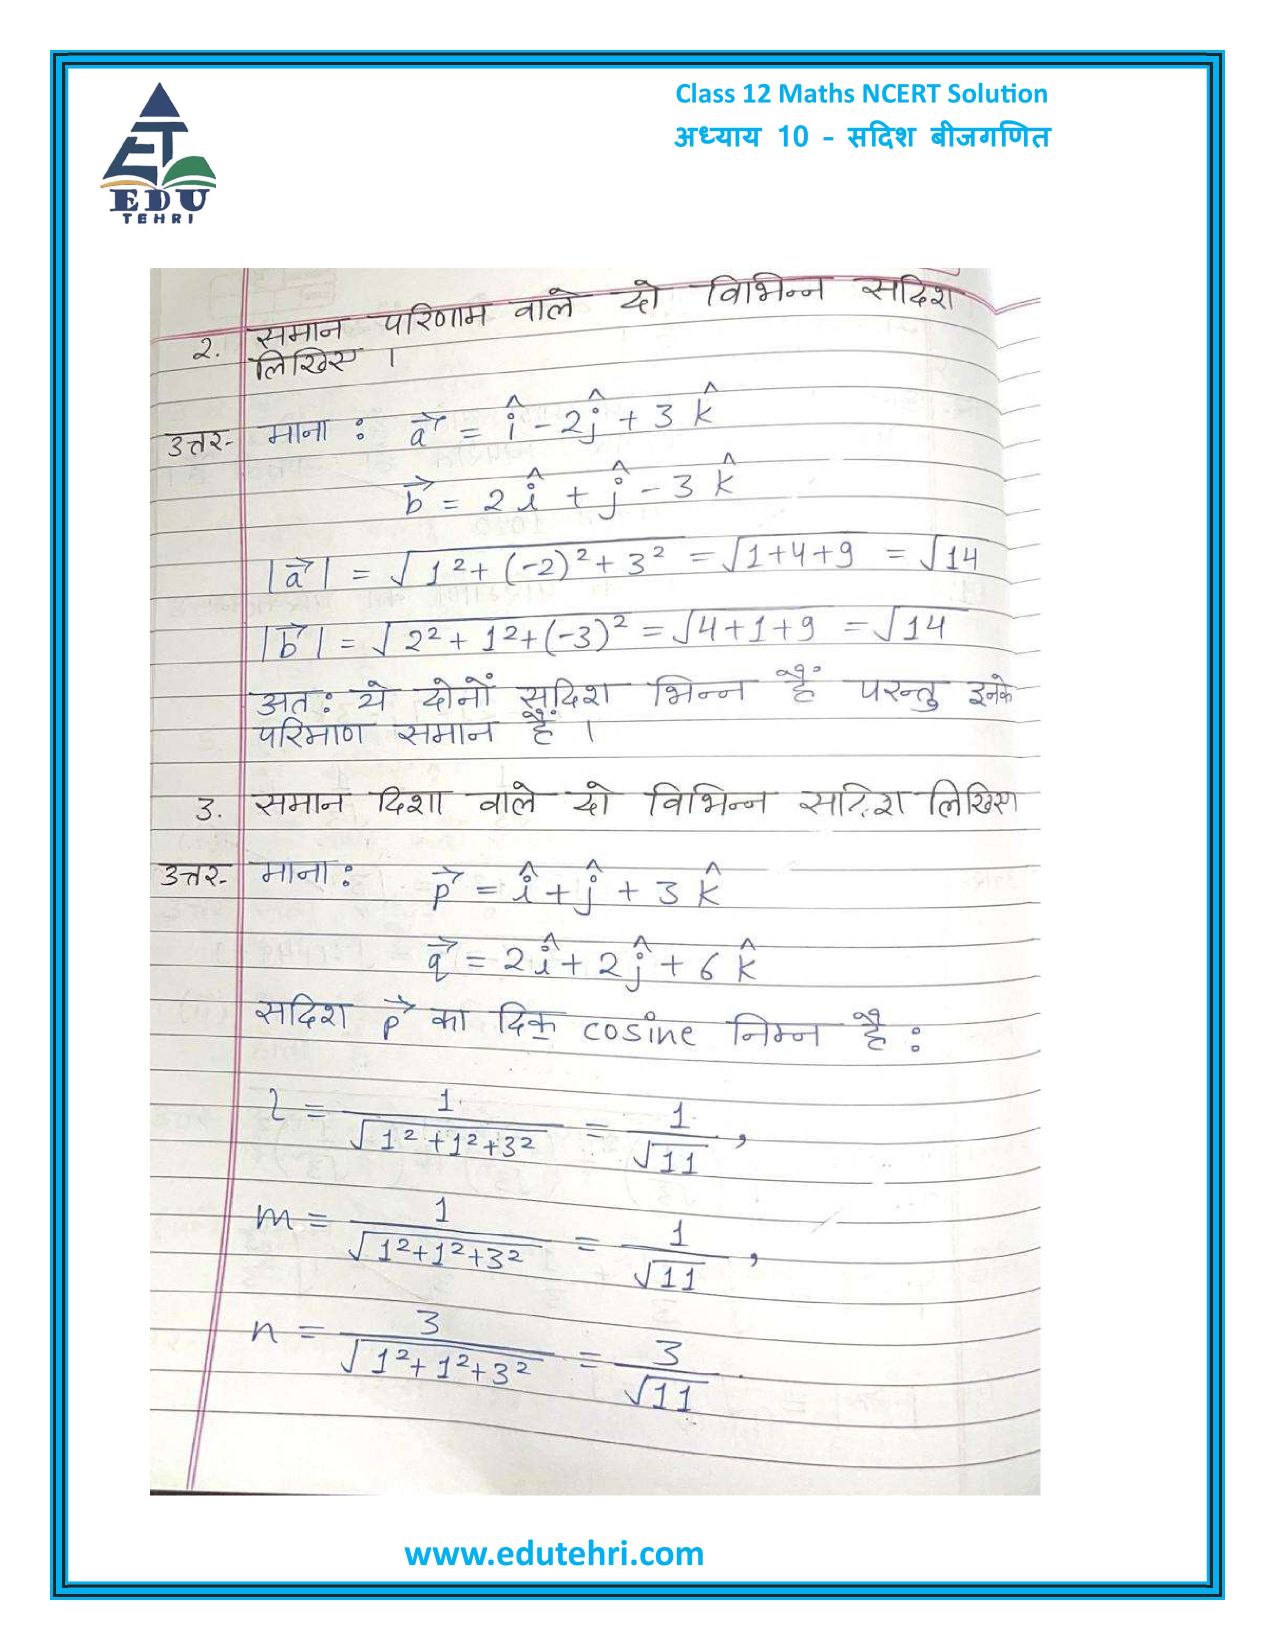 Class 12 Maths NCERT Solution
अध्याय 10 - सदिश बीजगणित
EDU
TEHRI
2. समान परिणाम वाले दो विभिन्न सदिश
लिखिए ।
उत्तर- माना : a⃗ = î - 2ĵ + 3k̂
b⃗ = 2î + ĵ - 3k̂
|a⃗| = √(1² + (-2)² + 3²) = √(1+4+9) = √14
|b⃗| = √(2² + 1² + (-3)²) = √(4+1+9) = √14
अत: ये दोनों सदिश भिन्न हैं परन्तु इनके
परिमाण समान हैं ।
3. समान दिशा वाले दो विभिन्न सदिश लिखिए
उत्तर- माना : p⃗ = î + ĵ + 3k̂
q⃗ = 2î + 2ĵ + 6k̂
सदिश p⃗ का दिक् cosine निम्न है :
l = 1/√(1²+1²+3²) = 1/√11 ,
m = 1/√(1²+1²+3²) = 1/√11 ,
n = 3/√(1²+1²+3²) = 3/√11
www.edutehri.com